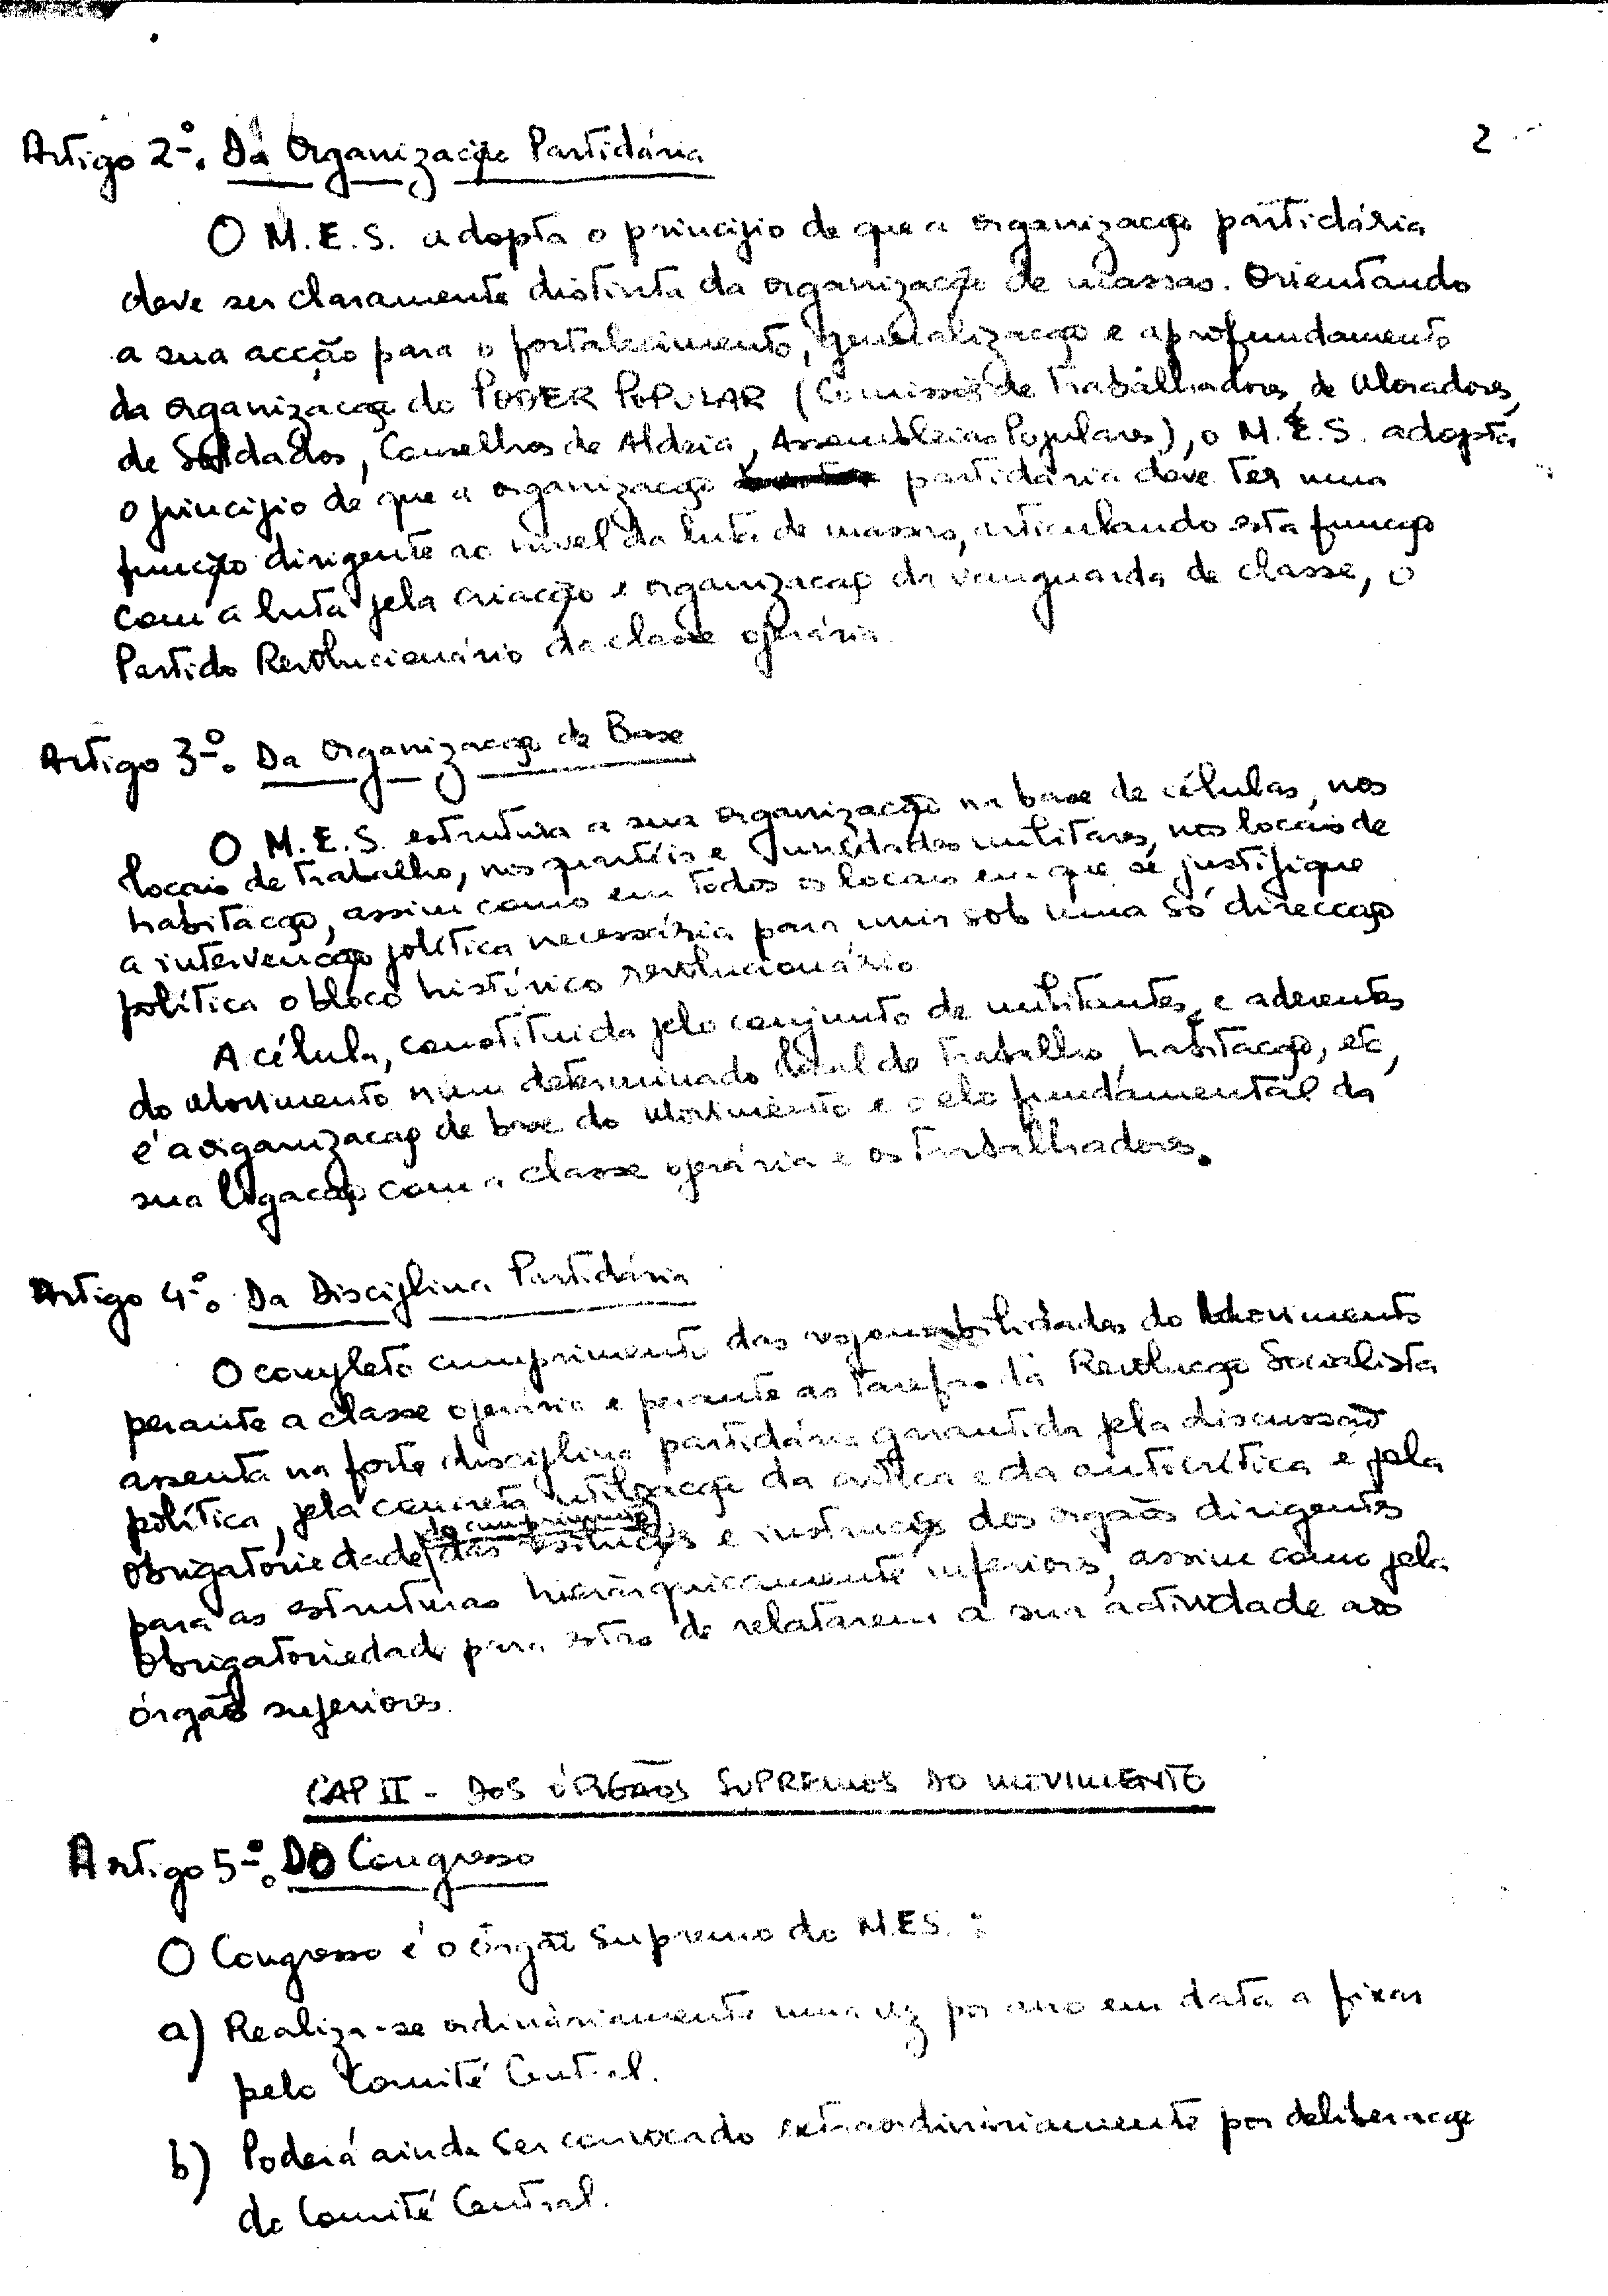 2
Artigo 2º. Da Organização Partidária
O M.E.S. adopta o princípio de que a organização partidária
deve ser claramente distinta da organização de massas. Orientando
a sua acção para o fortalecimento, generalização e aprofundamento
da organização do PODER POPULAR (Comissões de Trabalhadores, de Moradores,
de Soldados, Conselhos de Aldeia, Assembleias Populares), o M.E.S. adopta
o princípio de que a organização partidária deve ter uma
função dirigente ao nível da luta de massas, articulando esta função
com a luta pela criação e organização da vanguarda de classe, o
Partido Revolucionário da classe operária.
Artigo 3º. Da Organização de Base
O M.E.S. estrutura a sua organização na base de células, nos
locais de trabalho, nos quartéis e unidades militares, nos locais de
habitação, assim como em todos os locais em que se justifique
a intervenção política necessária para unir sob uma só direcção
política o bloco histórico revolucionário
A célula, constituida pelo conjunto de militantes e aderentes
do Movimento num determinado local de trabalho, habitação, etc,
é a organização de base do Movimento e o elo fundamental da
sua ligação com a classe operária e os trabalhadores.
Artigo 4º. Da Disciplina Partidária
O completo cumprimento das responsabilidades do Movimento
perante a classe operária e perante as tarefas da Revolução Socialista
assenta na forte disciplina partidária garantida pela discussão
política, pela concreta utilização da crítica e da autocrítica e pela
obrigatoriedade (do cumprimento) das resoluções e instruções dos orgãos dirigentes
para as estruturas hierárquicamente inferiores, assim como pela
obrigatoriedade para estas de relatarem a sua actividade aos
órgãos superiores.
CAP II - DOS ÓRGÃOS SUPREMOS DO MOVIMENTO
Artigo 5º. DO Congresso
O Congresso é o órgão Supremo do M.E.S. :
a) Realiza-se ordináriamente uma vez por ano em data a fixar
pelo Comité Central.
b) Poderá ainda ser convocado extraordináriamente por deliberação
do Comité Central.